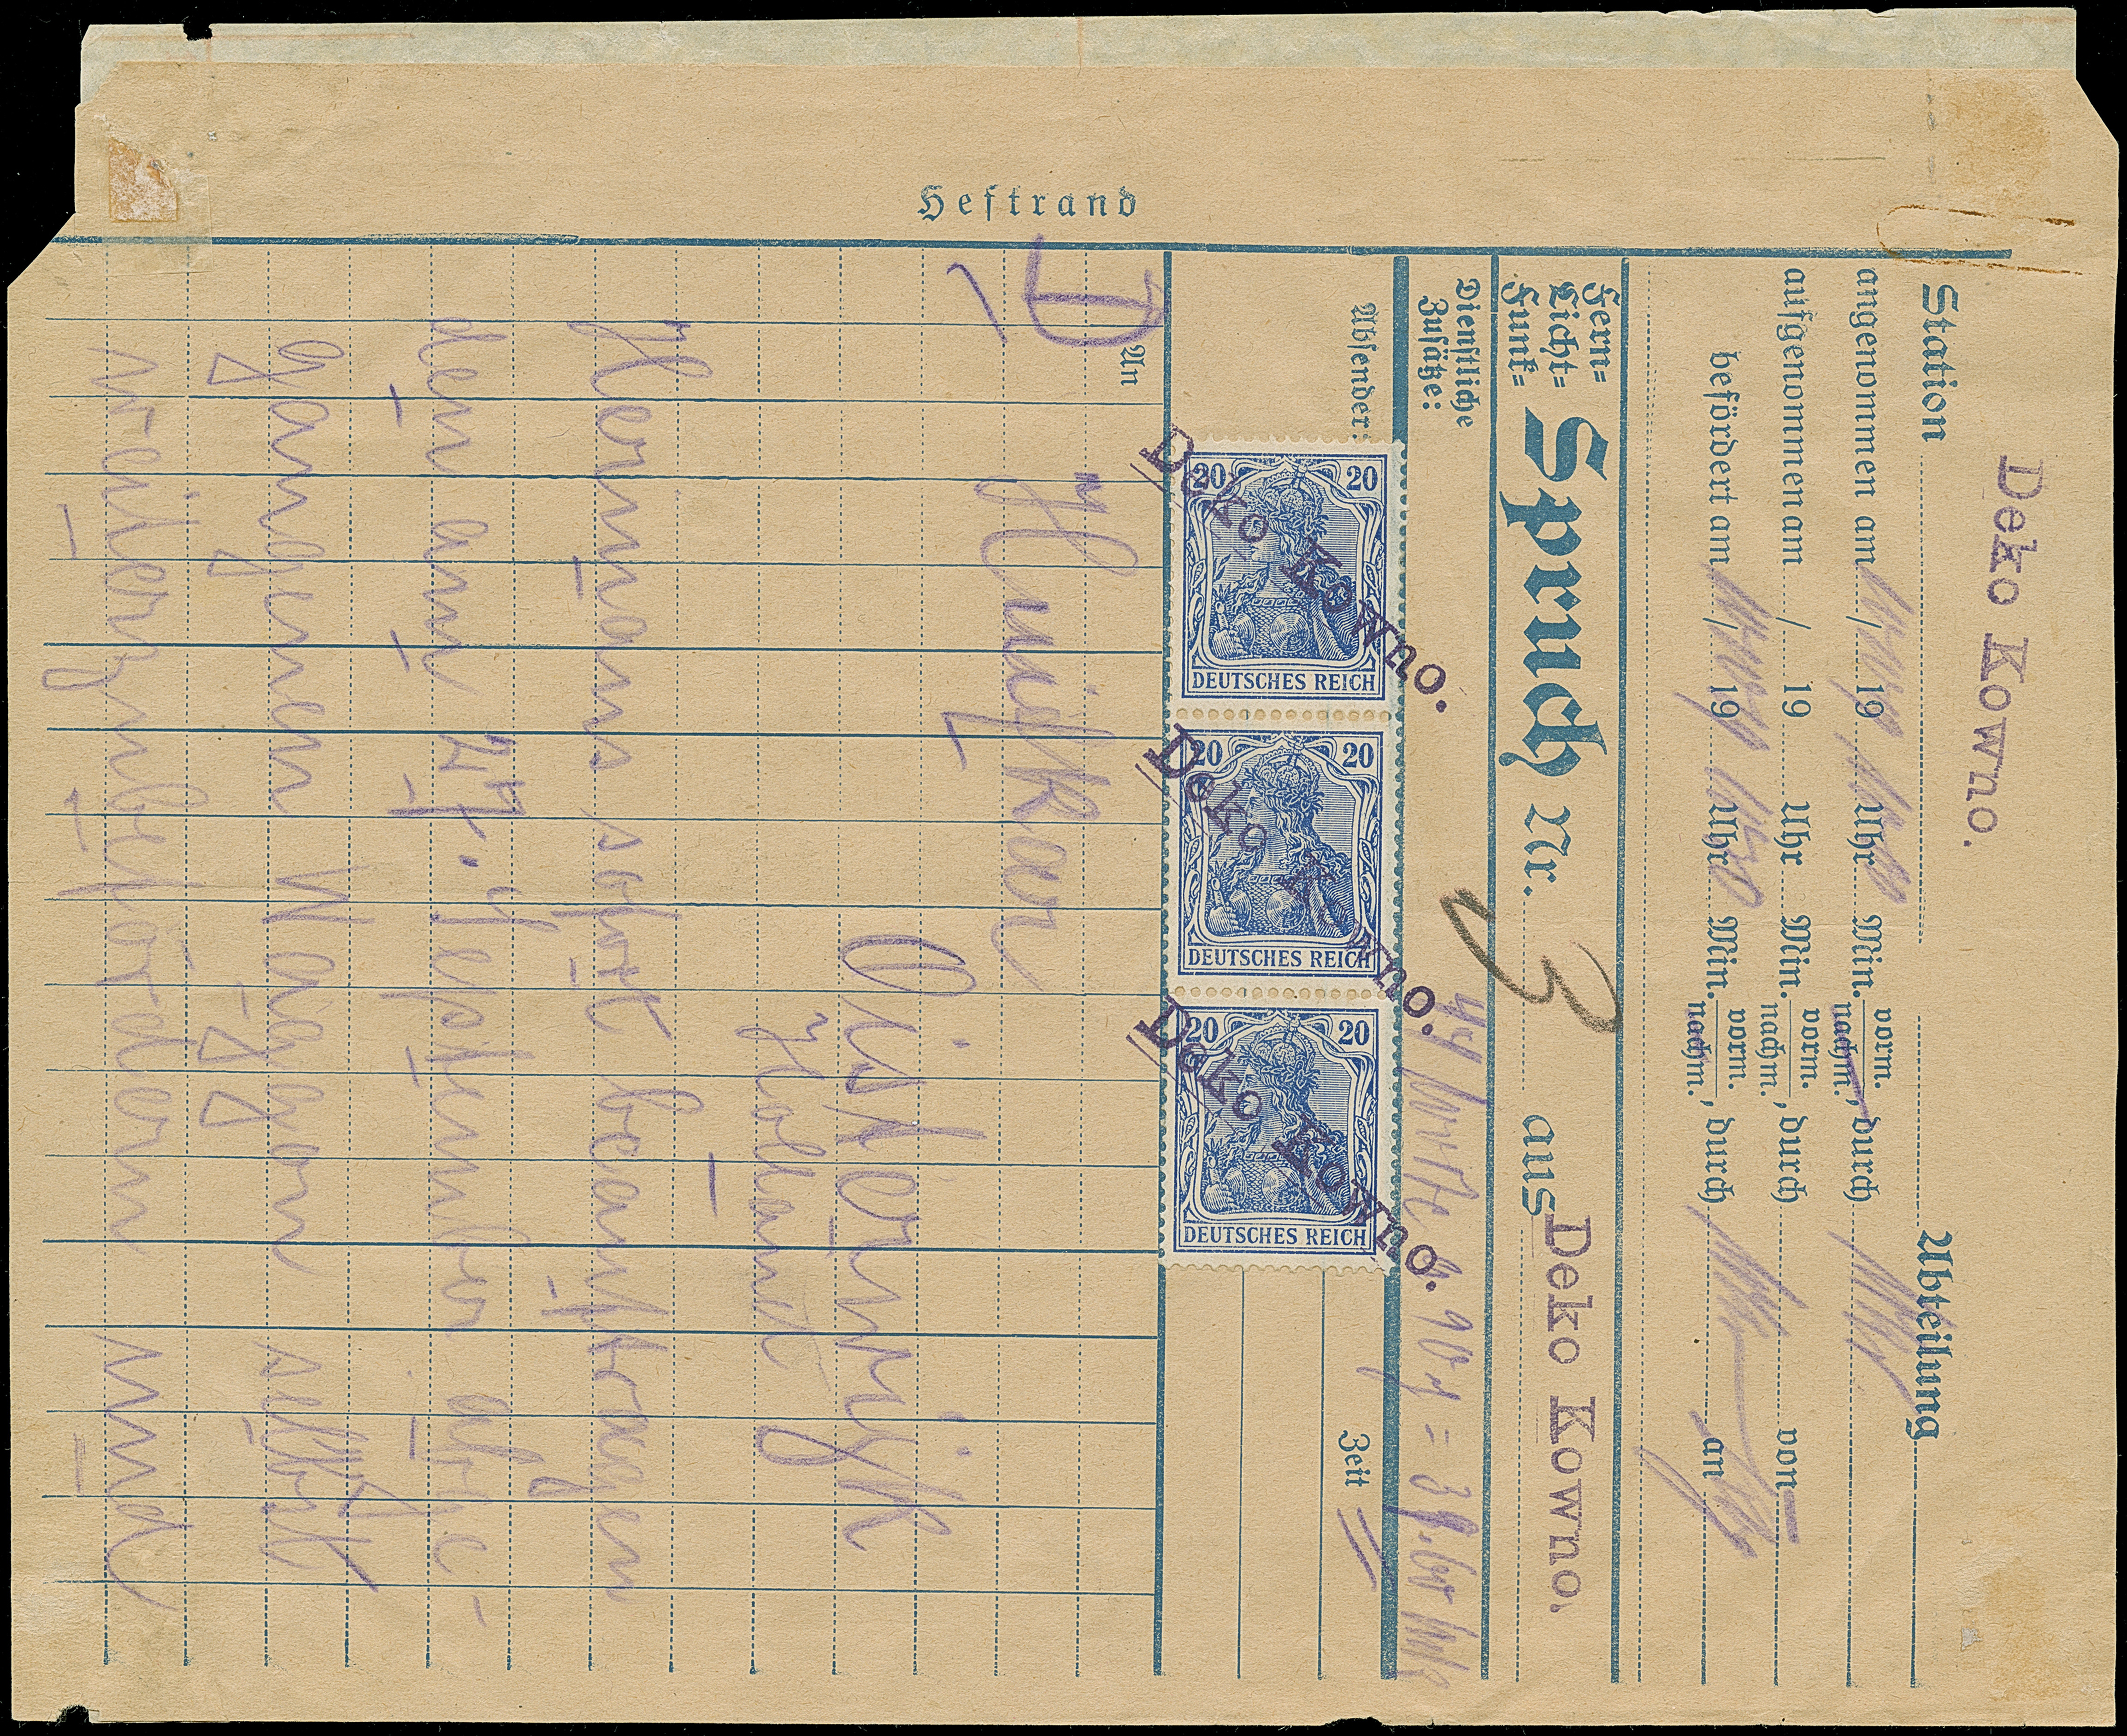 Heftrand
Deko Kowno.
Station Abteilung
angenommen am / 19 Uhr Min. vorm. nachm., durch
aufgenommen am / 19 Uhr Min. vorm. nachm., durch von
befördert am / 19 Uhr Min. vorm. nachm., durch an
Fern=
Licht=
Funk=
Spruch Nr. 3 aus Deko Kowno.
Dienstliche
Zusätze:
44 Worte
Absender: Zeit
20 20
DEUTSCHES REICH
Deko Kowno.
20 20
DEUTSCHES REICH
Deko Kowno.
20 20
DEUTSCHES REICH
Deko Kowno.
An
D
Oisterwijk
Holland
Hermans sofort beauftragen
den am 27. September abge-
gangenen Waggon selbst
weiterzubefördern und